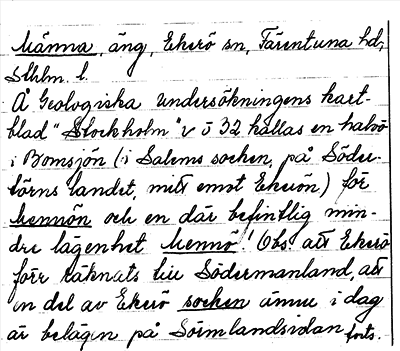 Männa, äng, Ekerö sn, Färentuna hd,
Sthlm. l.
Å Geologiska undersökningens kart-
blad "Stockholm" v ö 32 kallas en halvö
i Bomsjön (i Salems socken, på Söder-
törns landet, mitt emot Ekerön) för
Mennön och en där befintlig min-
dre lägenhet Mennö! Obs. att Ekerö
förr räknats till Södermanland, att
en del av Ekerö socken ännu i dag
är belägen på Sörmlandsidan forts.